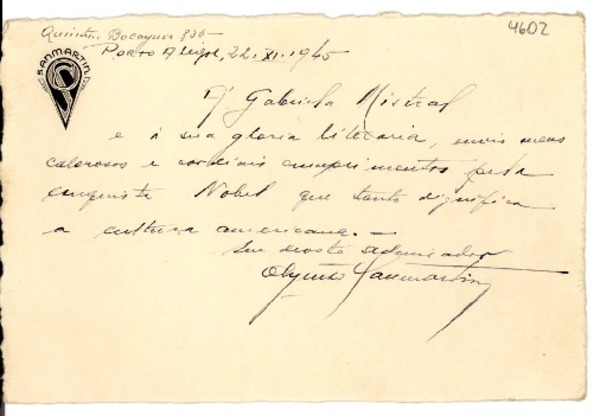 4602
Quintino Bocayuva 836
Porto Alegre, 22.XI.1945
SANMARTIN
A' Gabriela Mistral
e à sua gloria literaria, envio meus
calorosos e cordiais cumprimentos pela
conquista Nobel que tanto dignifica
a cultura americana. —
Seu devoto admirador
Olyntho Sanmartin